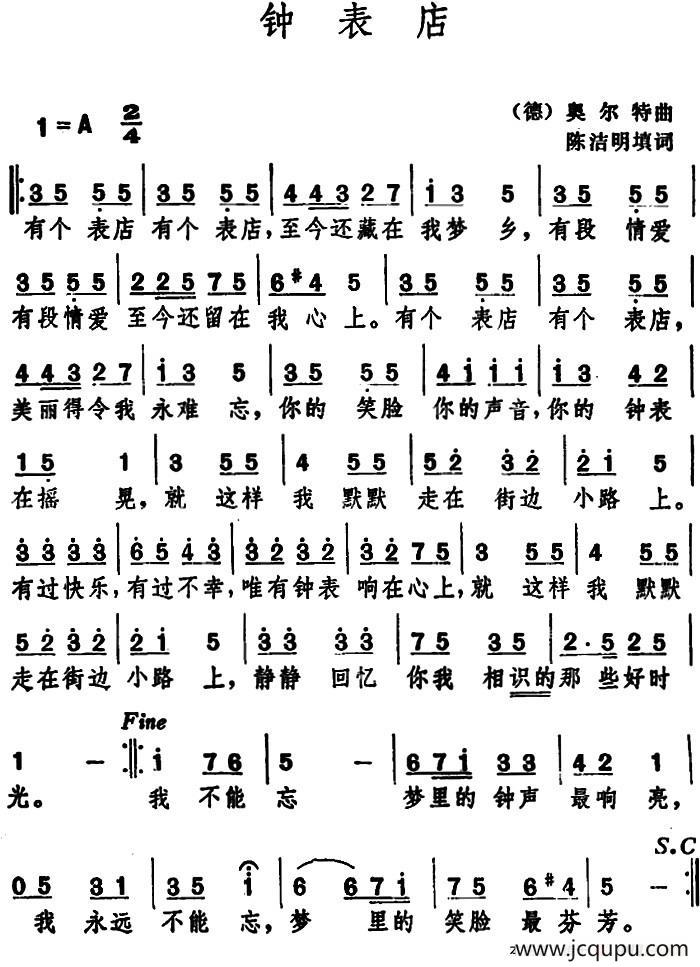 钟表店
1=A 2/4
（德）奥尔特曲
陈洁明填词
35 55 | 35 55 | 44327 | i3 5 | 35 55
有个 表店 有个 表店，至今还藏在 我梦 乡，有段 情爱
35 55 | 22575 | 6#4 5 | 35 55 | 35 55
有段情爱 至今还留在 我 心上。有个 表店 有个 表店，
44327 | i3 5 | 35 55 | 4i ii | i3 42
美丽得令我 永难 忘，你的 笑脸 你的声音，你的 钟表
15 1 | 3 55 | 4 55 | 52 32 | 2i 5
在摇 晃，就 这样 我 默默 走在 街边 小路 上。
33 33 | 65 43 | 32 32 | 32 75 | 3 55 | 4 55
有过快乐，有过不幸，唯有钟表 响在心上，就 这样 我 默默
52 32 | 2i 5 | 33 33 | 75 35 | 2·5 25
走在街边 小路 上，静静 回忆 你我 相识的那 些好时
Fine
1 － :‖: i 76 | 5 － | 67i 33 | 42 1
光。 我 不能 忘 梦里的 钟声 最响 亮，
S.C
05 31 | 35 i | 6 67i | 75 6#4 | 5 － :‖
我 永远 不能 忘，梦 里的 笑脸 最 芬 芳。
www.jcqupu.com